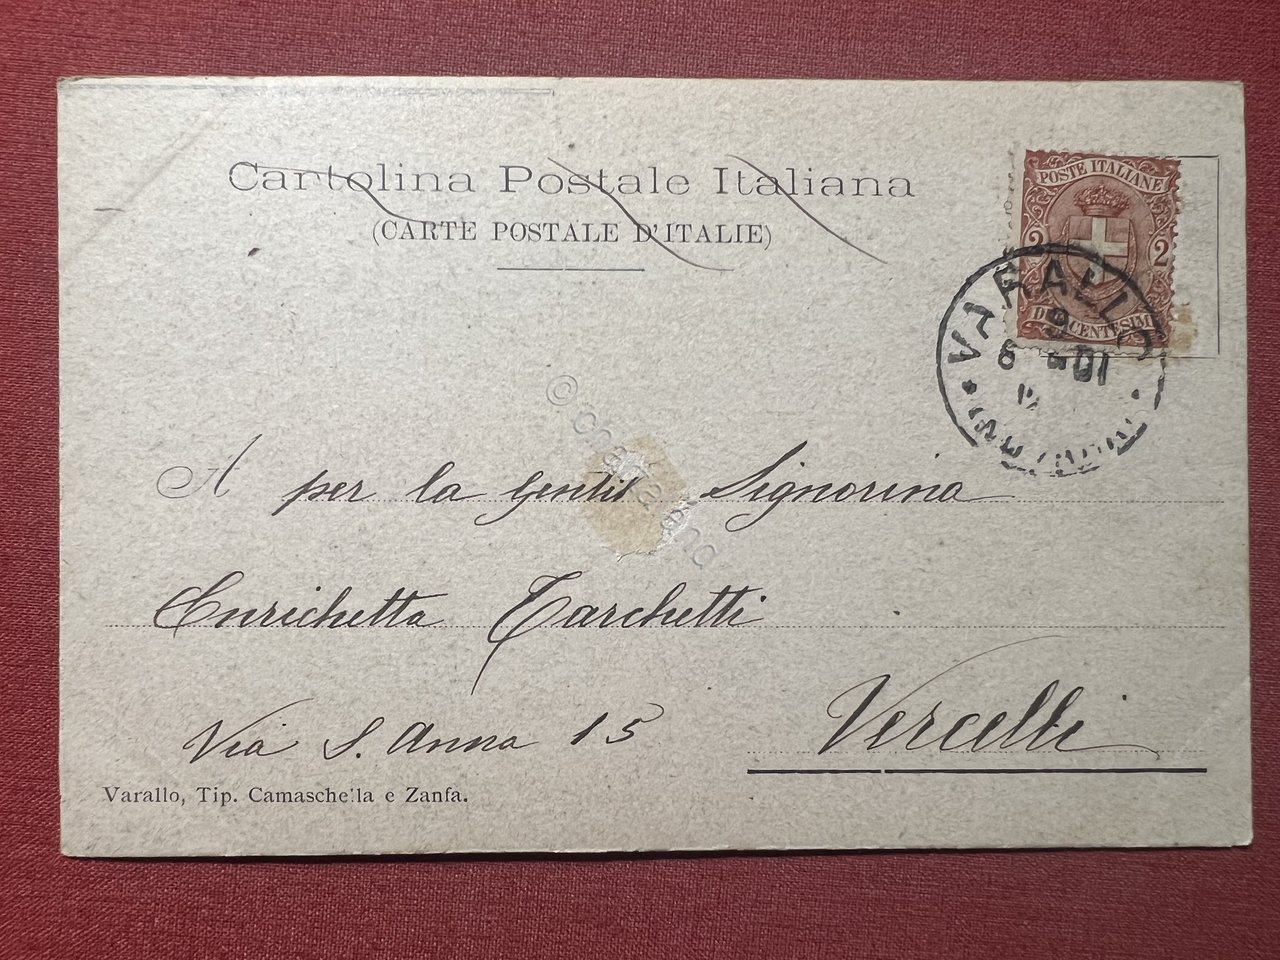 Cartolina Postale Italiana
(CARTE POSTALE D'ITALIE)
POSTE ITALIANE
2 2
DUE CENTESIMI
VARALLO
A per la gentil Signorina
Enrichetta Tarchetti
Via S. Anna 15
Vercelli
Varallo, Tip. Camaschella e Zanfa.